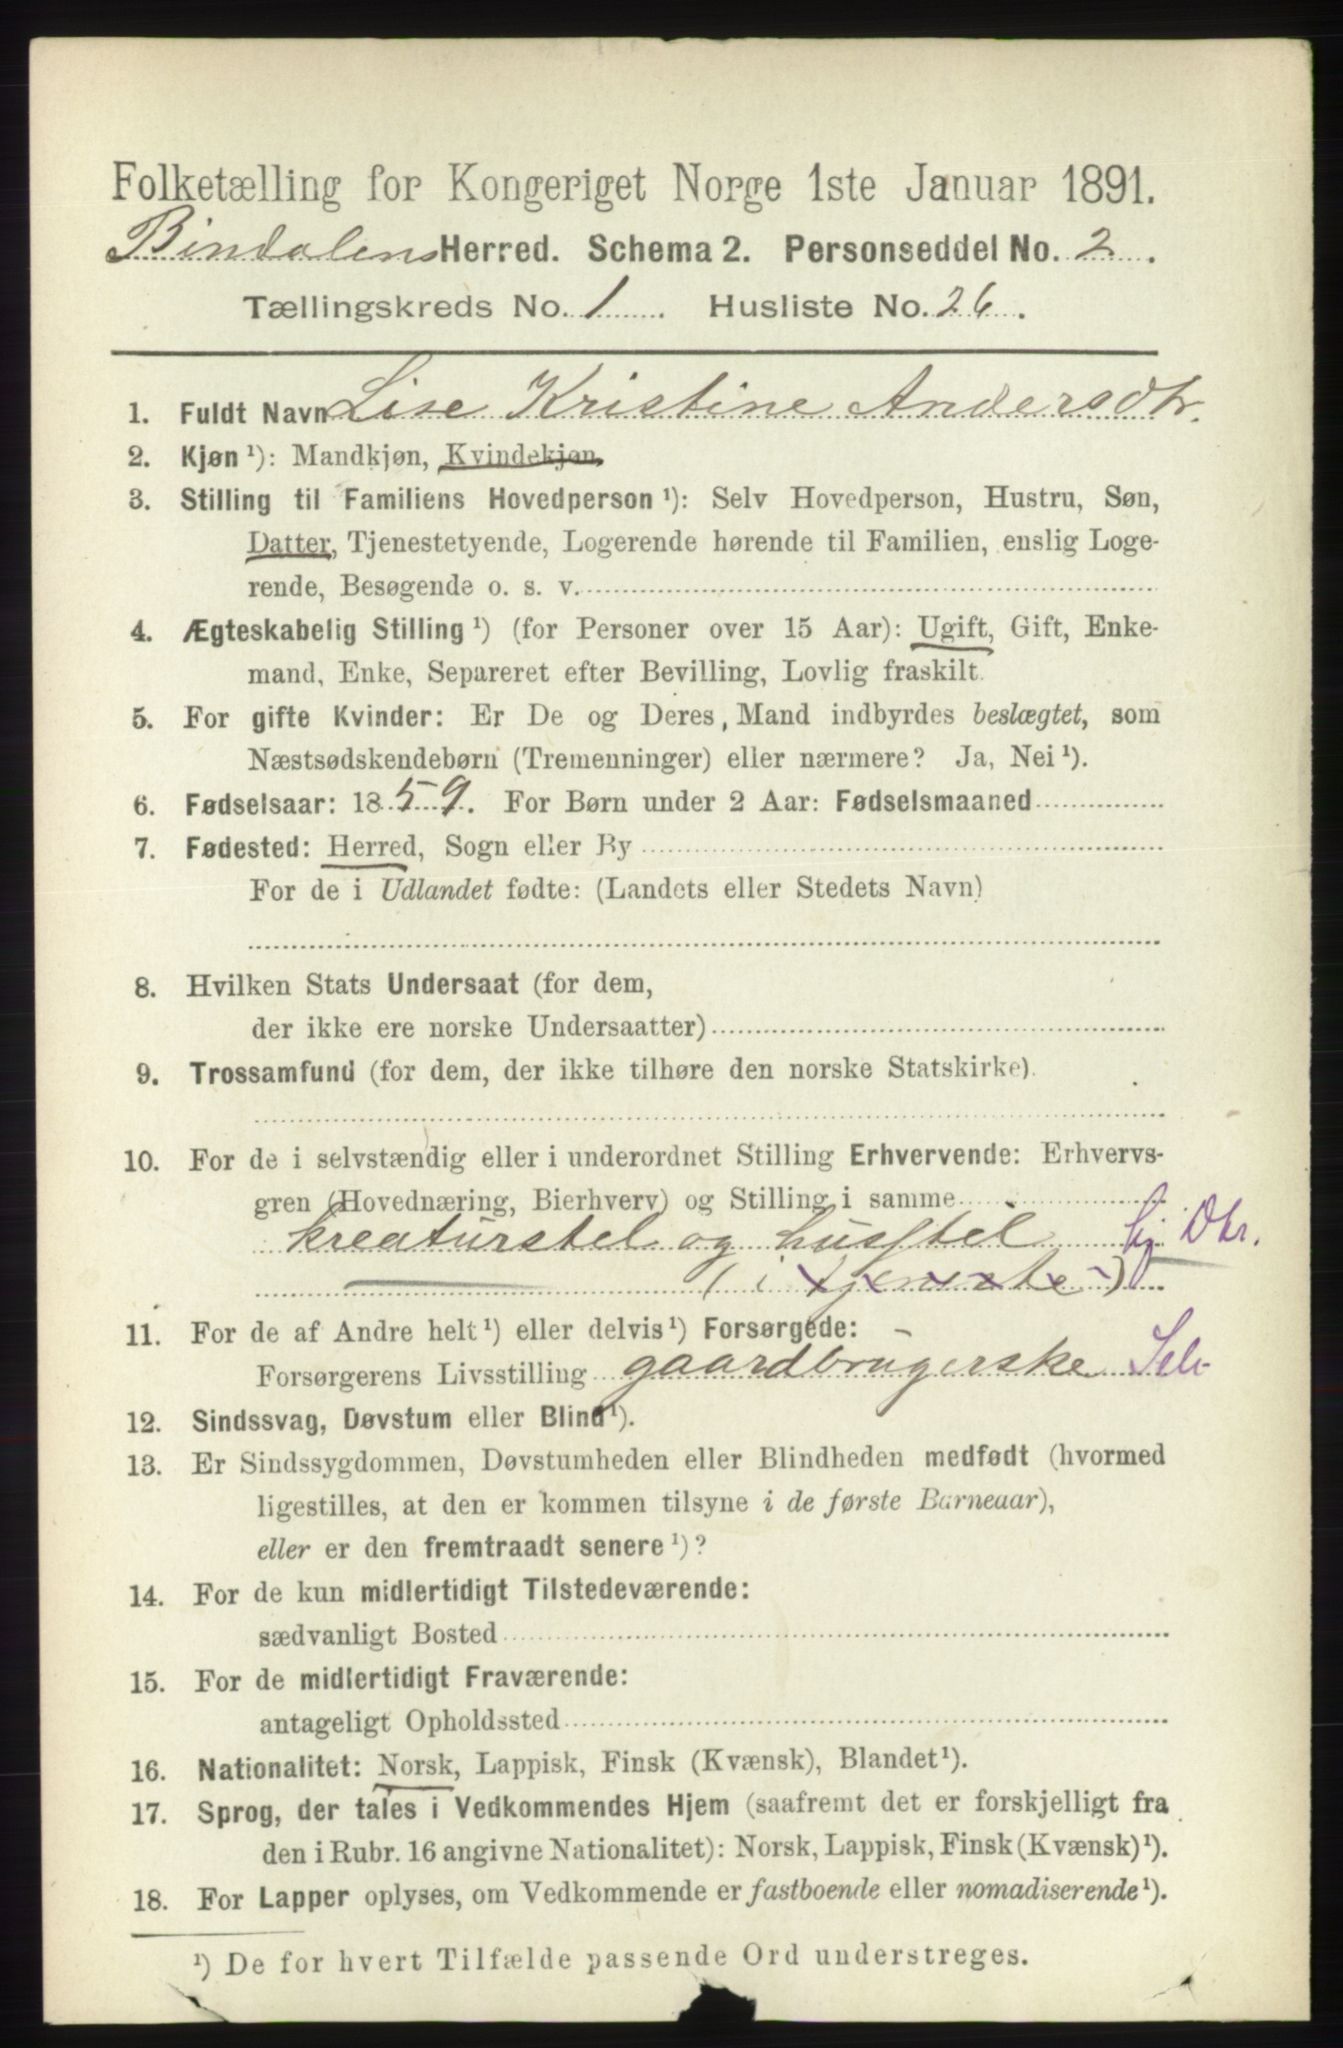 Folketælling for Kongeriget Norge 1ste Januar 1891.
Bindalens Herred. Schema 2. Personseddel No. 2.
Tællingskreds No. 1. Husliste No. 26.
1. Fuldt Navn Lise Kristine Andersdtr.
2. Kjøn ¹): Mandkjøn, Kvindekjøn
3. Stilling til Familiens Hovedperson ¹): Selv Hovedperson, Hustru, Søn,
Datter, Tjenestetyende, Logerende hørende til Familien, enslig Loge-
rende, Besøgende o. s. v.
4. Ægteskabelig Stilling ¹) (for Personer over 15 Aar): Ugift, Gift, Enke-
mand, Enke, Separeret efter Bevilling, Lovlig fraskilt.
5. For gifte Kvinder: Er De og Deres Mand indbyrdes beslægtet, som
Næstsødskendebørn (Tremenninger) eller nærmere? Ja, Nei ¹).
6. Fødselsaar: 1859. For Børn under 2 Aar: Fødselsmaaned
7. Fødested: Herred, Sogn eller By
For de i Udlandet fødte: (Landets eller Stedets Navn)
8. Hvilken Stats Undersaat (for dem,
der ikke ere norske Undersaatter)
9. Trossamfund (for dem, der ikke tilhøre den norske Statskirke).
10. For de i selvstændig eller i underordnet Stilling Erhvervende: Erhvervs-
gren (Hovednæring, Bierhverv) og Stilling i samme
kreaturstel og husstel hj Dtr.
(i tjeneste)
11. For de af Andre helt ¹) eller delvis ¹) Forsørgede:
Forsørgerens Livsstilling gaardbrugerske Selv
12. Sindssvag, Døvstum eller Blind ¹).
13. Er Sindssygdommen, Døvstumheden eller Blindheden medfødt (hvormed
ligestilles, at den er kommen tilsyne i de første Barneaar),
eller er den fremtraadt senere ¹)?
14. For de kun midlertidigt Tilstedeværende:
sædvanligt Bosted
15. For de midlertidigt Fraværende:
antageligt Opholdssted
16. Nationalitet: Norsk, Lappisk, Finsk (Kvænsk), Blandet ¹).
17. Sprog, der tales i Vedkommendes Hjem (saafremt det er forskjelligt fra
den i Rubr. 16 angivne Nationalitet): Norsk, Lappisk, Finsk (Kvænsk) ¹).
18. For Lapper oplyses, om Vedkommende er fastboende eller nomadiserende ¹).
¹) De for hvert Tilfælde passende Ord understreges.